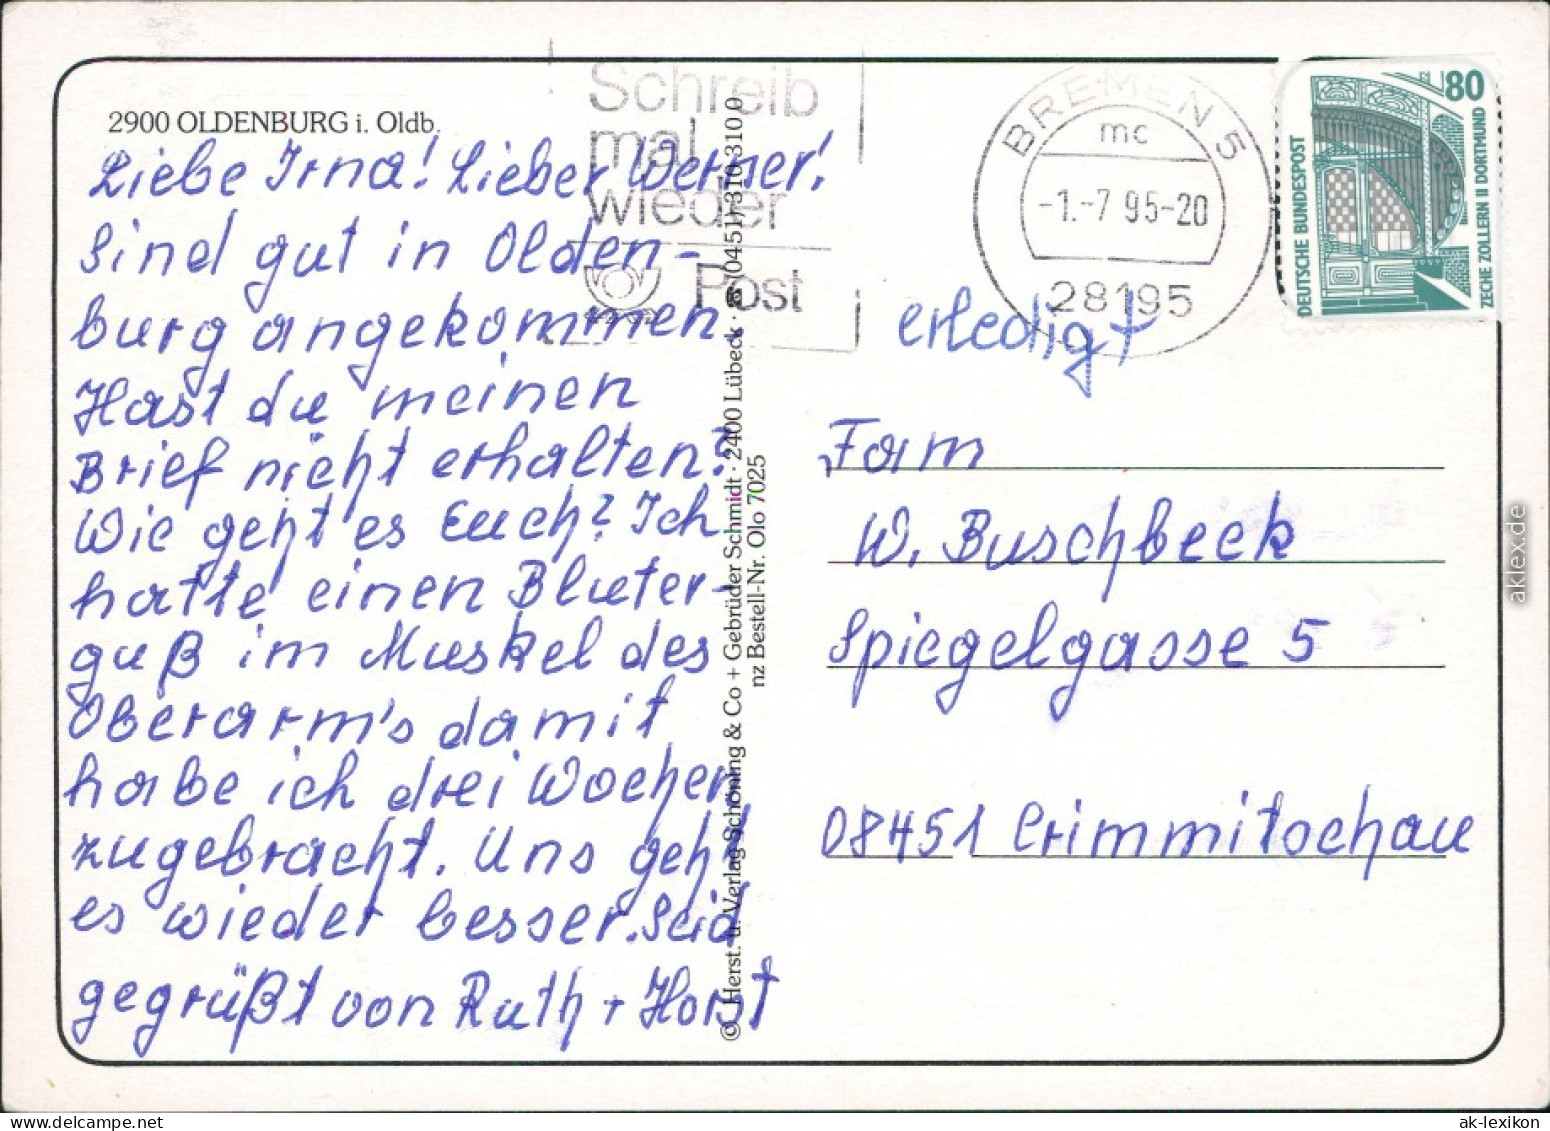 2900 OLDENBURG i. Oldb.
Liebe Irna! Lieber Werner!
Sind gut in Olden-
burg angekommen.
Hast du meinen
Brief nicht erhalten?
Wie geht es Euch? Ich
hatte einen Bluter-
guß im Muskel des
Oberarm's damit
habe ich drei Wochen
zugebracht. Uns geht
es wieder besser. Seid
gegrüßt von Ruth + Horst
Schreib
mal
wieder
Post
© Herst. u. Verlag Schöning & Co + Gebrüder Schmidt · 2400 Lübeck · ☎ (0451) 310 310 0
nz Bestell-Nr. Olo 7025
BREMEN 5
mc
-1.-7 95-20
28195
80
DEUTSCHE BUNDESPOST
ZECHE ZOLLERN II DORTMUND
erledigt
Fam
W. Buschbeck
Spiegelgasse 5
08451 Crimmitschau
aklex.de
ak-lexikon